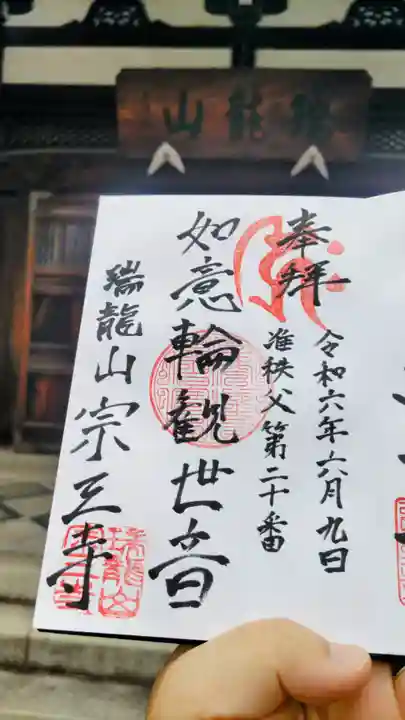 瑞龍山
奉拝
令和六年六月九日
准秩父第二十番
如意輪観世音
瑞龍山宗三寺
瑞龍山
宗三寺